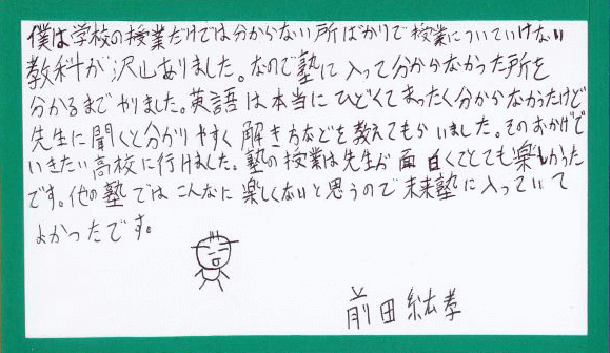 僕は学校の授業だけでは分からない所ばかりで授業についていけない
教科が沢山ありました。なので塾に入って分からなかった所を
分かるまでやりました。英語は本当にひどくてまったく分からなかったけど
先生に聞くと分かりやすく解き方などを教えてもらいました。そのおかげで
いきたい高校に行けました。塾の授業は先生が面白くてとても楽しかった
です。他の塾ではこんなに楽しくないと思うので未来塾に入っていて
よかったです。
前田紘孝